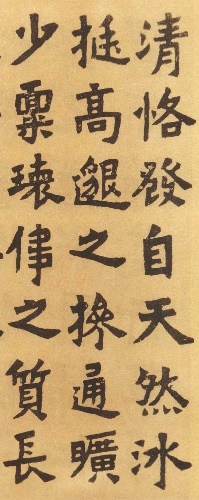 清恪發自天然冰
挺高邈之操通曠
少稟瓌偉之質長